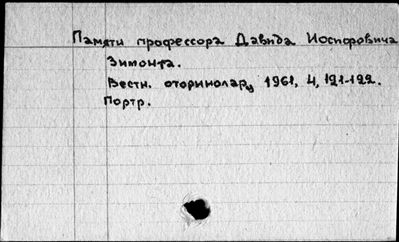 Памяти профессора Давида Иосифовича
Зимонта.
Вестн. оторинолар, 1961, 4, 121-122.
Портр.